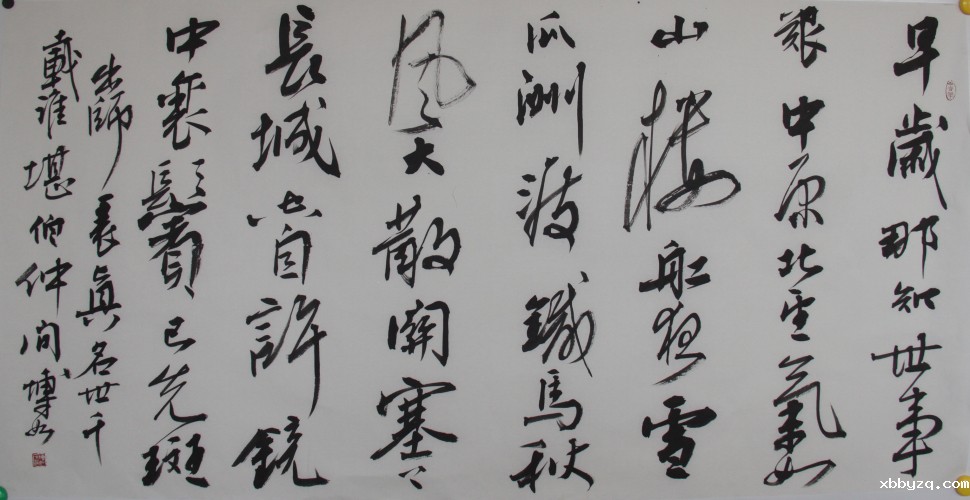 早歲那知世事
艱中原北望氣如
山樓船夜雪
瓜洲渡鐵馬秋
風大散關塞上
長城空自許鏡
中衰鬢已先斑
出師一表眞名世千
載誰堪伯仲間
xbbyzq.com